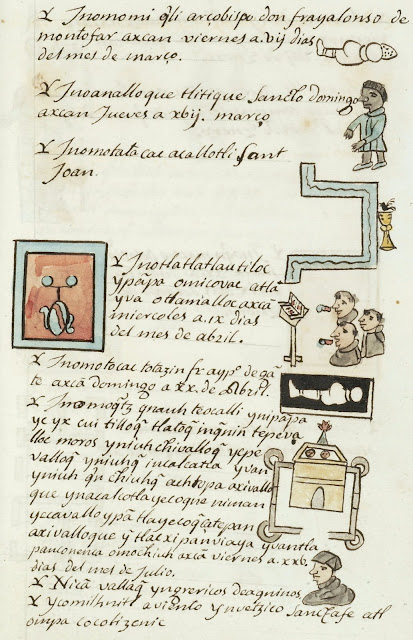 Y Inomomiqli arçobispo don frayalonso de
montofar axcan viernes a.vij dias
del mes de março.
Y Inoanalloque tlitique Sancto domingo
axcan Jueves a xbij. março
Y Inomotatacac acallotli Sant
Joan
Y Inotlatlatlautiloc
ypāpa omicovac atlā
yva otlamalloc axcā
miercoles a.ix dias
del mes de abril.
Y Inomotocac totazin fr ayps de gā
te axcā domingo a xx. de Abril.
Y Inomoqtz quauh teocalli ynipāpa
yc yx cui tilloq tlatoq
lloc moros yniuh chivalloq ycpe
valloq yniuhq incalcatca yvan
yniuh qn chiuhq achtopa axivallo
que ynacalcotlayecoque niman
yccavallo ypā tlayecoq çatepan
axivalloque yn tlaxipanviaya yvantla
pauconenca omochiuh axcā viernes a.xxb.
dias del mes de Julio.
Y Nicā vallaq deagninos
Y Ycomilhuiti Sanctafe atl
coco